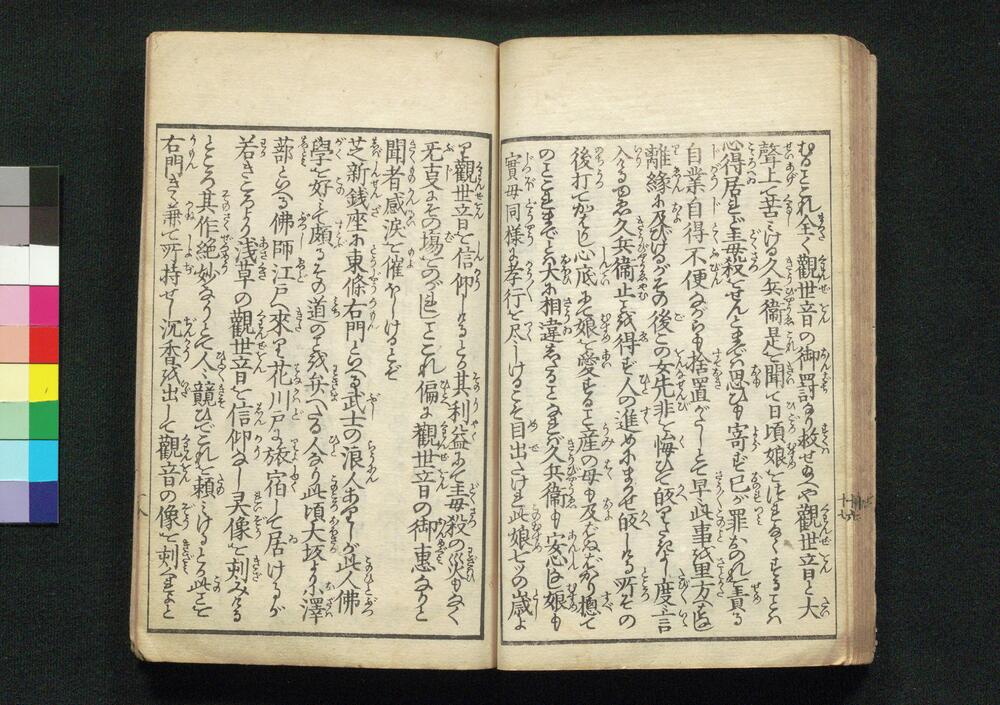 むるはこれ全く観世音の御罰なり救せ玉へや観世音と大
聲上て苦みける久兵衛是を聞て日頃娘をはしたなくするとハ
心得居しが毒殺をせんとまでハ思ひも寄ず己が罪おのれを責る
自業自得不便ながらも捨置がたしとて早此事を里方へ
離縁に及びけるがその後この女先非を悔ひて皈りたきよし度々言
入るゆゑ久兵衛止を得ず人の進めにまかせ皈しける所その
後ハ打てかはりし心底にて娘を愛する事産の母も及ばぬばかり惣て
のことまで大に相違したる事なれバ久兵衛も安心し娘も
實母同様に孝行を尽しけるこそ目出たけれ此娘七つの歳よ
り観世音を信仰しけるとぞ其利益にて毒殺の災もなく
无事にその場をのがれしことこれ偏に観世音の御恵なりと
聞者感涙を催ほしけるとぞ
芝新銭座に東條右門といへる武士の浪人ありしが此人佛
學を好みて頗るその道のことを弁へたる人なり此頃大坂より小澤
蔀といへる佛師江戸へ來り花川戸に旅宿して居けるが
若きころより浅草の観世音を信仰なし灵像を刻みける
ところ其作絶妙なりとて人々競ひてこれを頼みけるとぞ此ことを
右門きゝ兼て所持せし沉香を出して観音の像を刻くれよと